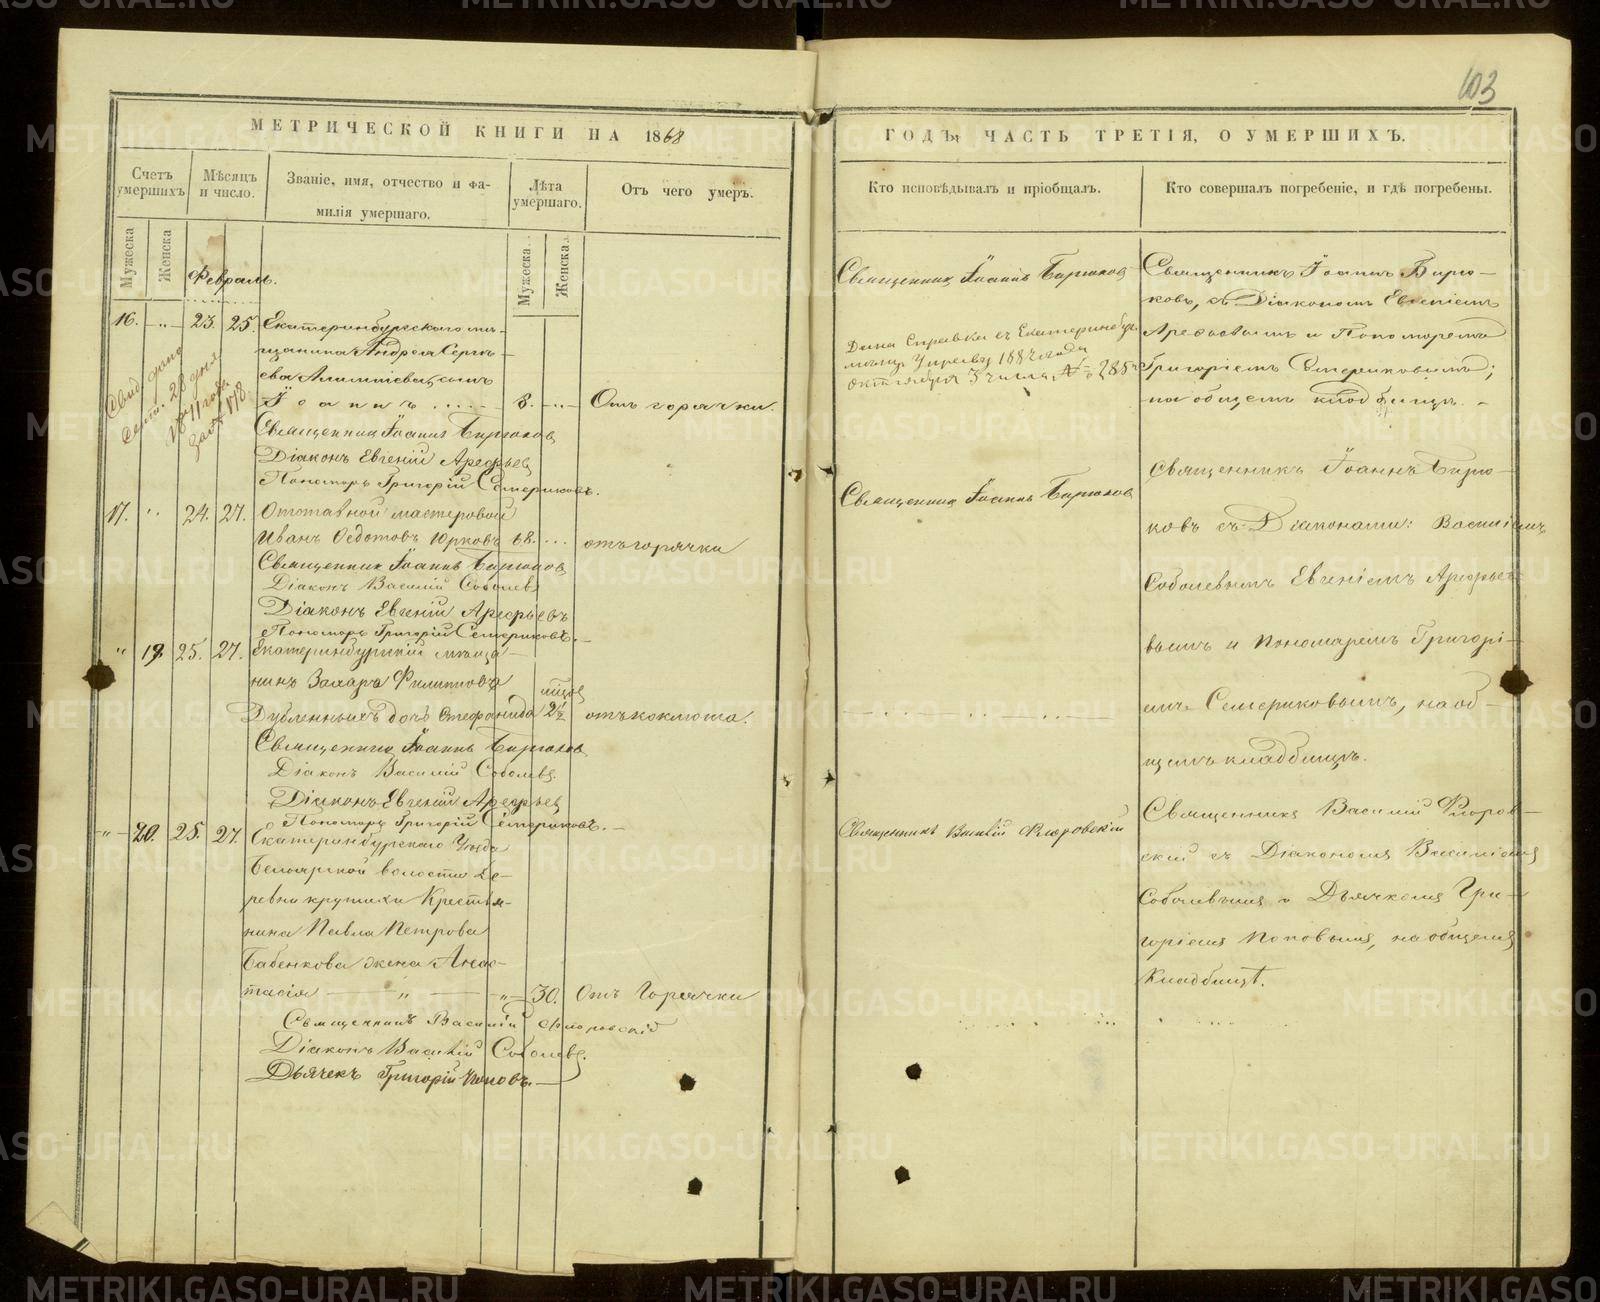 103
МЕТРИЧЕСКОЙ КНИГИ НА 1868
Счетъ умершихъ
Мѣсяцъ и число.
Званіе, имя, отчество и фа-
милія умершаго.
Лѣта умершаго.
Отъ чего умеръ.
Мужеска
Женска
Мужеска
Женска
Февраль.
16. „ 23. 25. Екатеринбургскаго мѣ-
щанина Андрея Серге-
ева сынъ
Іоаннъ 8. Отъ горячки.
Свид. дано
Сент. 28 дня
1911 года
за № 178
Священникъ Іоаннъ Бирюковъ
Діаконъ Евгеній Арефьевъ
Пономарь Григорій Семериковъ.
17. „ 24. 27. Отставной мастеровой
Иванъ Ѳедотовъ Юрковъ 68. отъ горячки
Священникъ Іоаннъ Бирюковъ
Діаконъ Василій Соболевъ
Діаконъ Евгеній Арефьевъ
Пономарь Григорій Семериковъ.
„ 19. 25. 27. Екатеринбургскій мѣща-
нинъ Захаръ Филипповъ
Дубленныхъ дочь Стефанида 2½ отъ коклюша.
Священникъ Іоаннъ Бирюковъ
Діаконъ Василій Соболевъ.
Діаконъ Евгеній Арефьевъ
Пономарь Григорій Семериковъ.
„ 20. 25. 27. Екатеринбургскаго Уѣзда
Белоярской волости де-
ревни крутихи Крестья-
нина Павла Петрова
Бабенкова жена Анас-
тасія „ „ 30. Отъ Горячки
Священникъ Василій Флоровскій
Діаконъ Василій Соболевъ.
Дьячекъ Григорій Поповъ.
ГОДЪ, ЧАСТЬ ТРЕТІЯ, О УМЕРШИХЪ.
Кто исповѣдывалъ и пріобщалъ.
Кто совершалъ погребеніе, и гдѣ погребены.
Священникъ Іоаннъ Бирюковъ
Дана Справка въ Екатеринбур.
мѣщ. Управу 1887 года
октября 3 числа, № 285
Священникъ Іоаннъ Бирю-
ковъ, съ Діакономъ Евгеніемъ
Арефьевымъ и Пономаремъ
Григоріемъ Семериковымъ;
на общемъ кладбищѣ.
Священникъ Іоаннъ Бирюковъ
Священникъ Іоаннъ Бирю-
ковъ съ Діаконами: Василіемъ
Соболевымъ Евгеніемъ Арефье-
вымъ и Пономаремъ Григорі-
емъ Семериковымъ, на об-
щемъ кладбищѣ.
Священникъ Василій Флоровскій
Священникъ Василій Флоров-
скій съ Діакономъ Василіемъ
Соболевымъ и Дьячкомъ Гри-
горіемъ Поповымъ, на общемъ
Кладбищѣ.
METRIKI.GASO-URAL.RU